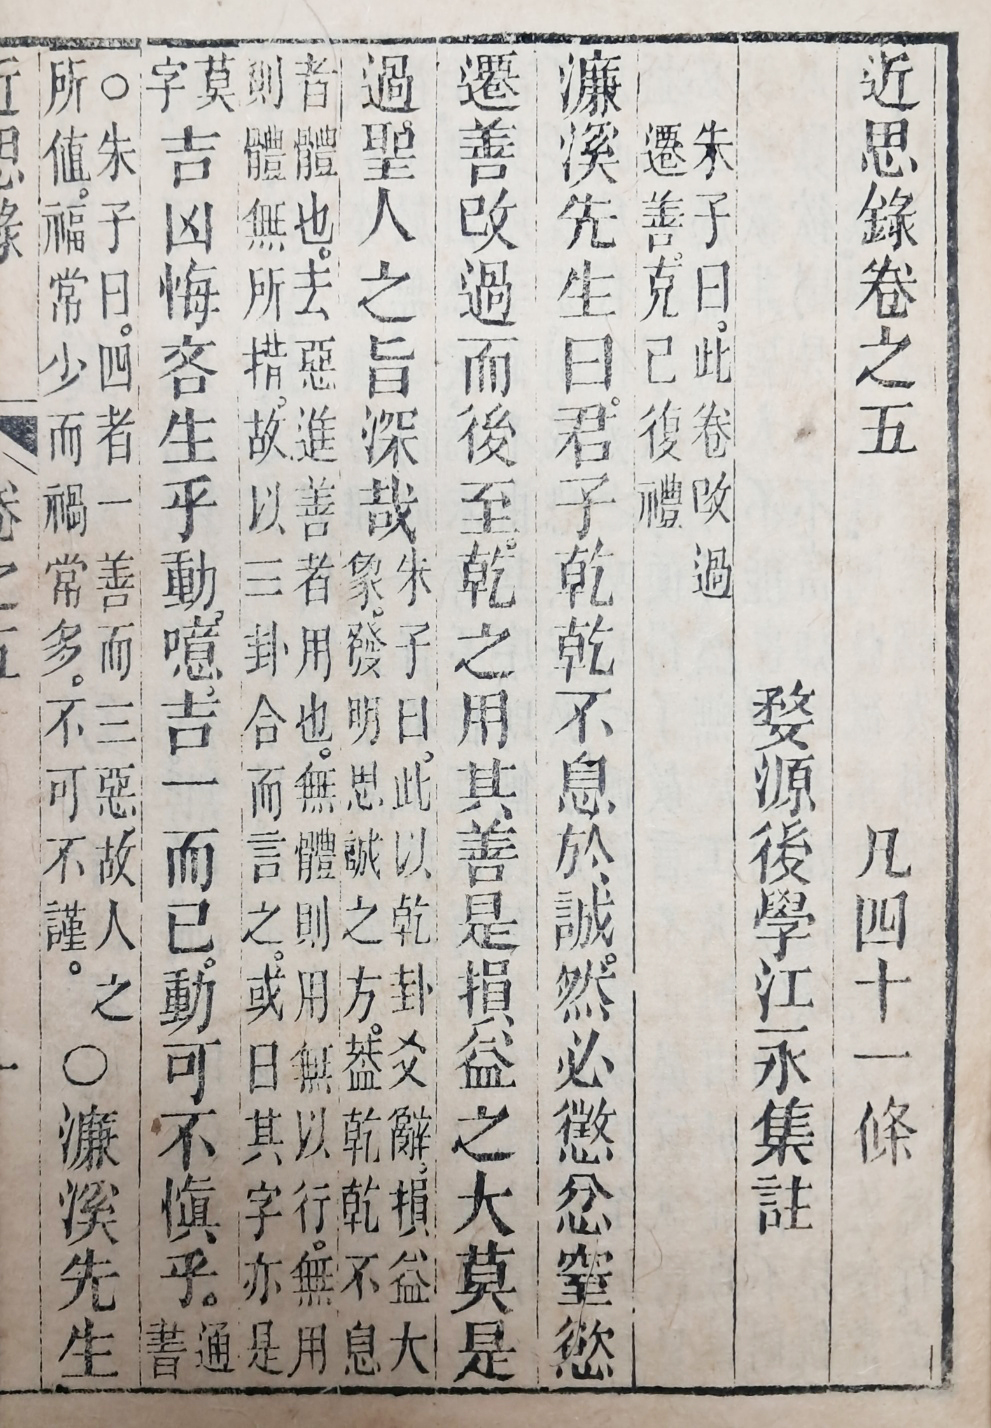 近思錄卷之五 凡四十一條
婺源後學江永集註
朱子曰。此卷改過
遷善。克己復禮
濂溪先生曰。君子乾乾不息於誠。然必懲忿窒慾
遷善改過而後至。乾之用其善是損益之大莫是
過。聖人之旨深哉
朱子曰。此以乾卦爻辭。損益大
象。發明思誠之方。葢乾乾不息
者體也。去惡進善者用也。無體則用無以行。無用
則體無所措。故以三卦合而言之。或曰其字亦是
莫
字
吉凶悔吝生乎動。噫。吉一而已。動可不愼乎。
通
書
○朱子曰。四者一善而三惡故人之
所值。福常少而禍常多。不可不謹。
○濂溪先生
近思錄 卷之五 一